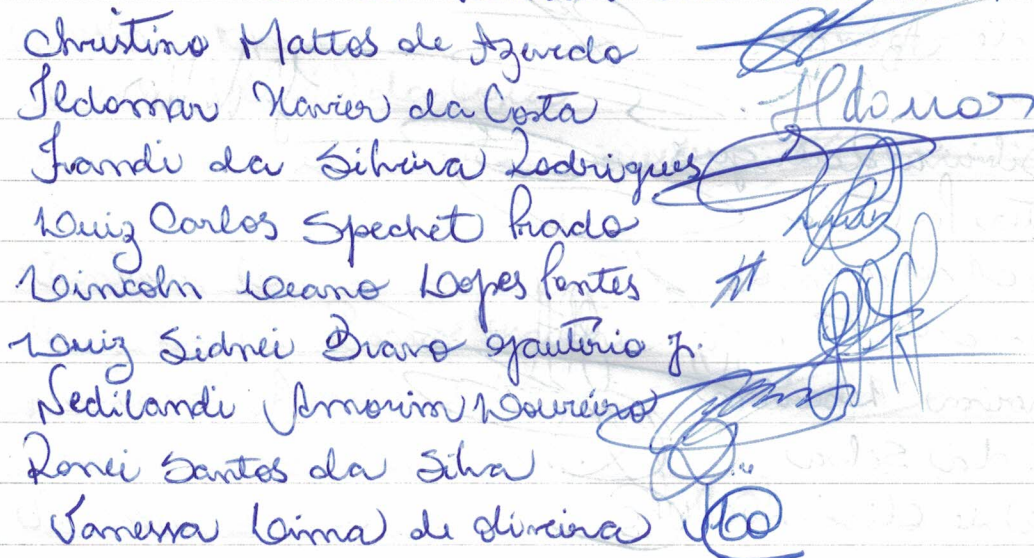 Christino Mattos de Azevedo
Ildomar Xavier da Costa Ildomar
Ivandi da Silveira Rodrigues
Luiz Carlos Spechet Prado
Lincoln Leano Lopes Pontes
Luiz Sidnei Bravo Gautério Jr.
Nedilandi Amorim Loureiro
Ronei Santos da Silva
Vanessa Lima de Oliveira